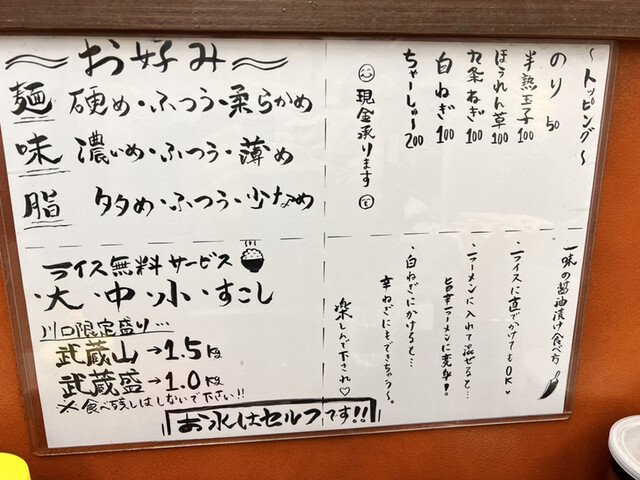 ～お好み～
麺 硬め・ふつう・柔らかめ
味 濃いめ・ふつう・薄め
脂 多め・ふつう・少なめ
～トッピング～
のり 50
半熟玉子 100
ほうれん草 100
九条ねぎ 100
白ねぎ 100
ちゃーしゅー 200
現金承ります
ライス無料サービス
・大・中・小・すこし
川口限定盛り…
武蔵山→1.5kg
武蔵盛→1.0kg
※食べ残しはしないで下さい!!
お水はセルフです!!
一味の醤油漬け食べ方
・ライスに直でかけてもOK♥
・ラーメンに入れて混ぜると…
旨辛ラーメンに変身!!
・白ねぎにかけると…
辛ねぎにもできちゃう～。
楽しんで下され♡